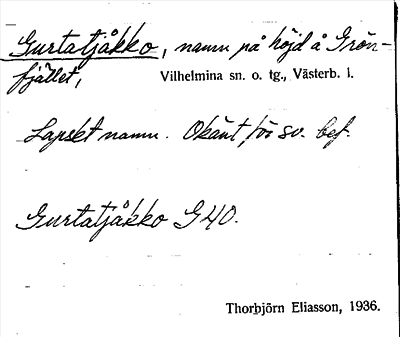 Gurtatjåkko, namn på höjd å Grön-
fjället, Vilhelmina sn. o. tg., Västerb. l.
Lapskt namn. Okänt för sv. bef.
Gurtatjåkko G40.
Thorbjörn Eliasson, 1936.